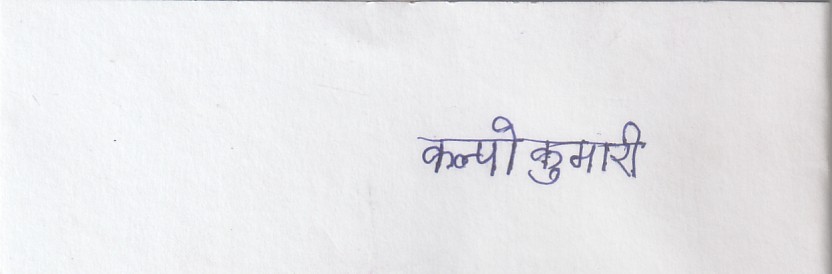 कल्पो कुमारी